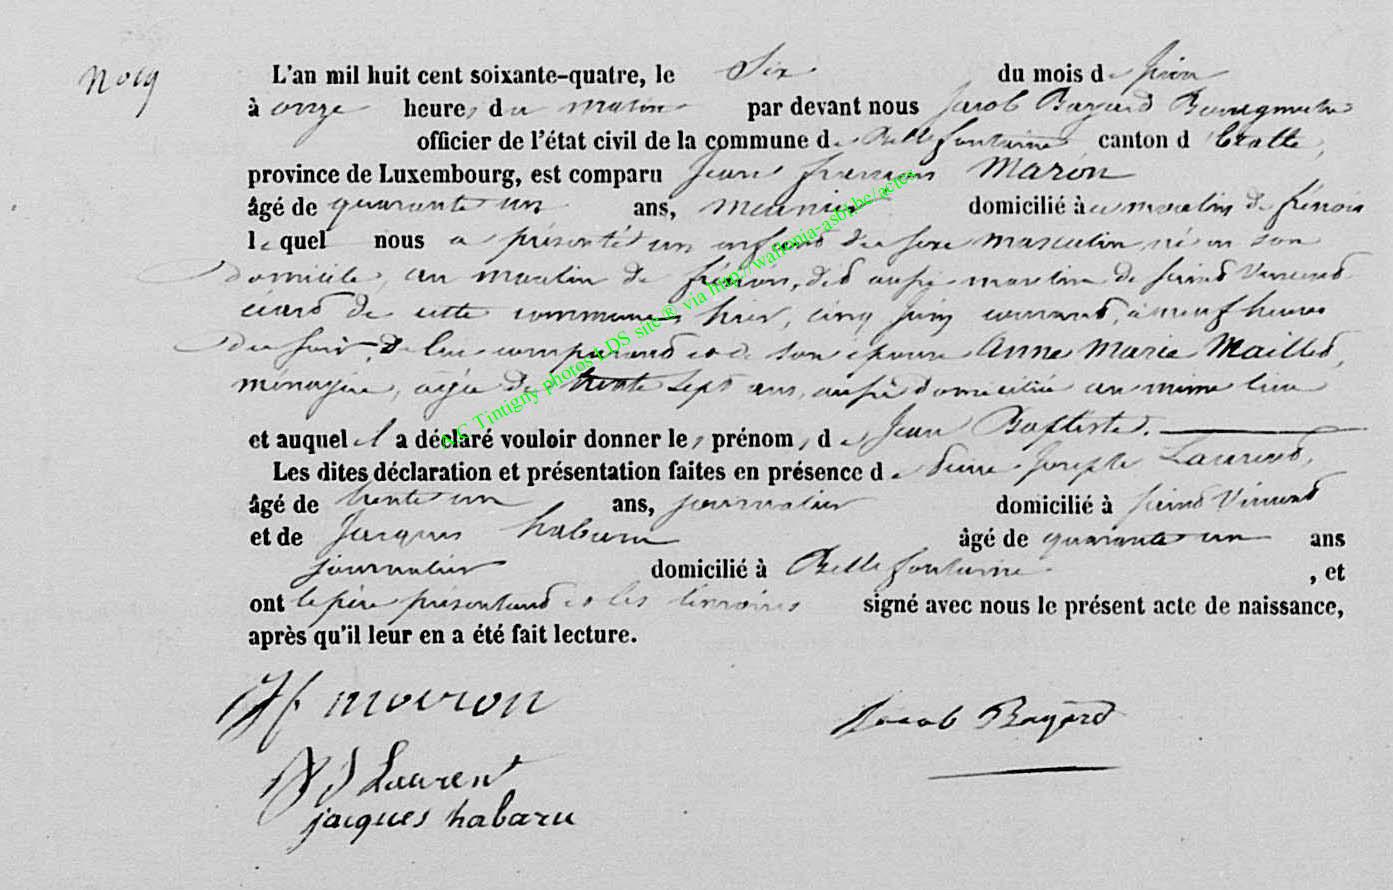 No 19
L'an mil huit cent soixante-quatre, le Six du mois de Juin
à onze heures du matin par devant nous Jacob Bayard Bourgmestre
officier de l'état civil de la commune de Bellefontaine canton d'Etalle,
province de Luxembourg, est comparu Jean françois Maron
âgé de quarante un ans, meunier domicilié à au moulin de frénois
lequel nous a présenté un enfant du sexe masculin, né en son
domicile, au moulin de frénois, dit aussi moulin de saint Vincent
écart de cette commune, hier, cinq Juin courant, à neuf heures
du soir, de lui comparant et de son épouse Anne Marie Maillet,
ménagère, agée de trente Sept ans, aussi domiciliée au même lieu
et auquel il a déclaré vouloir donner les prénoms de Jean Baptiste.
Les dites déclaration et présentation faites en présence de Pierre Joseph Laurent,
âgé de trente un ans, journalier domicilié à saint Vincent
et de Jacques habaru âgé de quarante un ans
journalier domicilié à Bellefontaine , et
ont le père présentant et les témoins signé avec nous le présent acte de naissance,
après qu'il leur en a été fait lecture.
JF maron
Jacob Bayard
P J Laurent
jacques habaru
A.C Tintigny photos LDS site ® via http://wallonia-asbl.be/actes